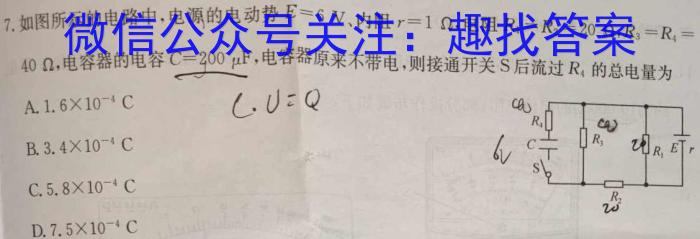 7.如图所示的电路中,电源的电动势E=6 V,内阻r=1 Ω,电阻 R₃=R₄=
微信公众号关注：趣找答案
40 Ω,电容器的电容C=200 μF,电容器原来不带电,则接通开关S后流过R₄的总电量为
A.1.6×10⁻⁴ C
B.3.4×10⁻⁴ C
C.5.8×10⁻⁴ C
D.7.5×10⁻⁴ C
C.U=Q
R₄
C
S
6V
R₃
R₁
20
E
r
R₂
20